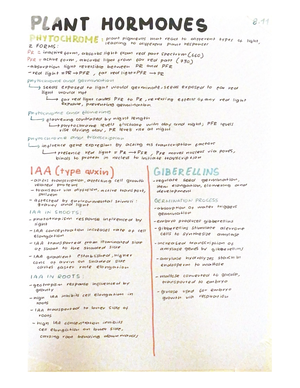 PLANT HORMONES
8.11
PHYTOCHROME: plant pigments that react to different types of light, leading to different plant responses
2 FORMS:
PR = inactive form, absorbs light from red part spectrum (660)
PFR = active form, absorbs light from far red part (730)
-absorption by reversible between PR and PFR
-red light = PR→PFR, far red light = PFR→PR
phytochrome and germination
↳ seeds exposed to light would germinate, seeds exposed to far red light would not
↳ far red light causes PFR to PR, reversing
phytochrome and flowering
↳ flowering stimulated by night length
phytochrome and transcription
↳ influence gene expression by acting as transcription factors
↳ presence red light = PR → PFR, PFR moves nucleus via pores, binds to protein in nucleus to initiate transcription
IAA (type auxin)
-plant hormones, controlling cell growth
-affected by environmental stimuli: gravity and light
IAA IN SHOOTS:
-phototropism response influenced by light
-IAA concentration increases rate of cell elongation
-IAA transported from illuminated side of shoot to the shaded side
-IAA gradient established, higher conc of auxin on shaded side causes faster rate elongation
IAA IN ROOTS:
-geotropism response influenced by gravity
-high IAA inhibits cell elongation in roots
-IAA transported to lower side of roots
-high IAA concentration inhibits cell elongation on lower side, causing root bending downwards
GIBERELLINS
-regulate seed germination, stem elongation, flowering and development
GERMINATION PROCESS
-absorption of water triggers germination
-embryo produces gibberellins
-gibberellins stimulate aleurone cells to synthesise amylase
-increased transcription of amylase genes by gibberellins
-amylase hydrolyses starch in endosperm to maltose
-maltose converted to glucose, transported to embryo
-glucose used for embryo growth via respiration